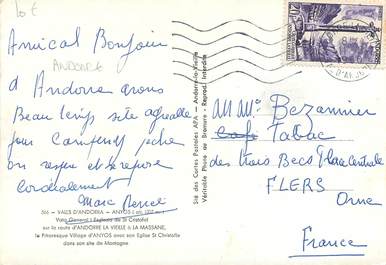 10 €
ANDORRE
Amical Bonjour
d Andorre avons
Beau temps site agréable
pour Camping pêche
on respire et se repose
cordialement
Marc
366 - VALLS D'ANDORRA - ANYOS (alt. 1302 m.)
Vista General i Església de St Cristofol
sur la route d'ANDORRE LA VIEILLE à LA MASSANE,
le Pittoresque Village d'ANYOS avec son Eglise St Christofle
dans son site de Montagne
Sté des Cartes Postales APA - Andorre-la-Vieille
Véritable Photo au Bromure - Reprod. Interdite
M Mme Bezannier
Café Tabac
des trois Becs Place Centrale
FLERS
Orne
France